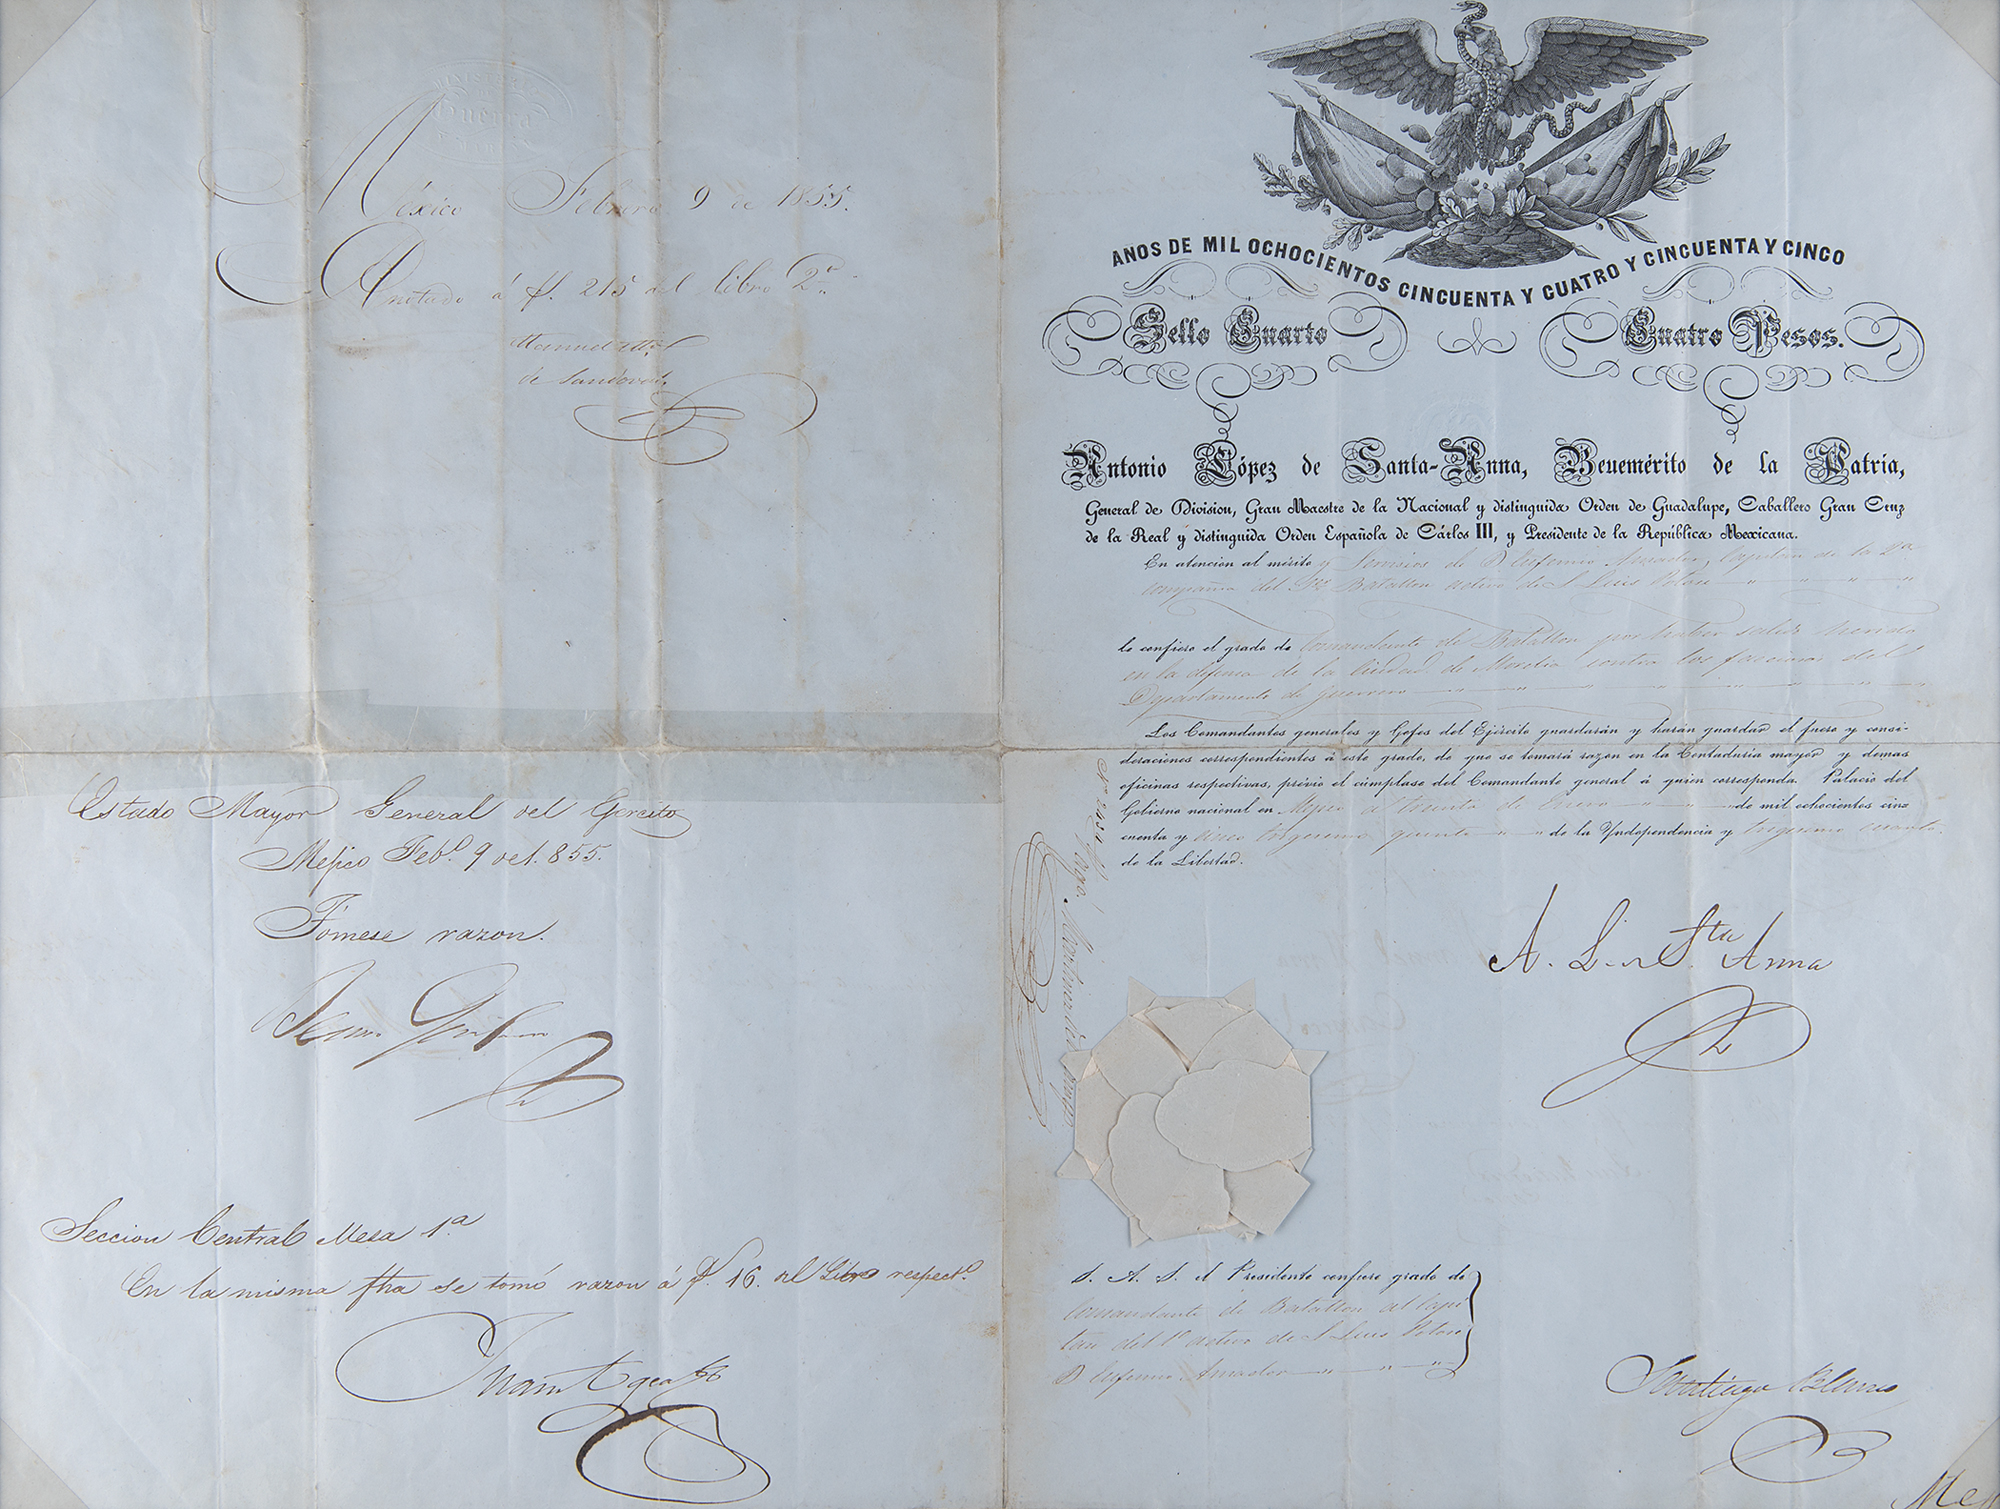 México Febrero 9 de 1855.
Anotado á f. 215 del libro 2º
Manuel Mª
de Sandoval
Estado Mayor General del Ejercito
Mejico Febº 9 de 1.855.
Tómese razon.
Seccion Central Mesa 1ª
En la misma fha se tomó razon á f. 16. del Libro respectº
MINISTERIO
Guerra
AÑOS DE MIL OCHOCIENTOS CINCUENTA Y CUATRO Y CINCUENTA Y CINCO
Sello Cuarto Cuatro Pesos.
Antonio López de Santa-Anna, Benemérito de la Patria,
General de Division, Gran Maestre de la Nacional y distinguida Orden de Guadalupe, Caballero Gran Cruz
de la Real y distinguida Orden Española de Cárlos III, y Presidente de la República Mexicana.
En atencion al mérito y servicios de D Eufemio Amador, Capitan de la 2ª
compañia del 1er Batallon activo de S. Luis Potosi
le confiero el grado de Comandante de Batallon por haber salido herido
en la defensa de la Ciudad de Morelia contra los facciosos del
Departamento de Guerrero
Los Comandantes generales y Gefes del Ejército guardarán y harán guardar el fuero y consi-
deraciones correspondientes á este grado, de que se tomará razon en la Contaduría mayor y demas
oficinas respectivas, prévio el cúmplase del Comandante general á quien corresponda. Palacio del
Gobierno nacional en Mejico á treinta de Enero de mil ochocientos cin-
cuenta y cinco trigesimo quinto de la Yndependencia y trigesimo cuarto
de la Libertad.
A. L. de Sta. Anna
S. A. S. el Presidente confiere grado de
Comandante de Batallon al Capi
tan del 1º activo de S. Luis Potosi
D Eufemio Amador
Santiago Blanco